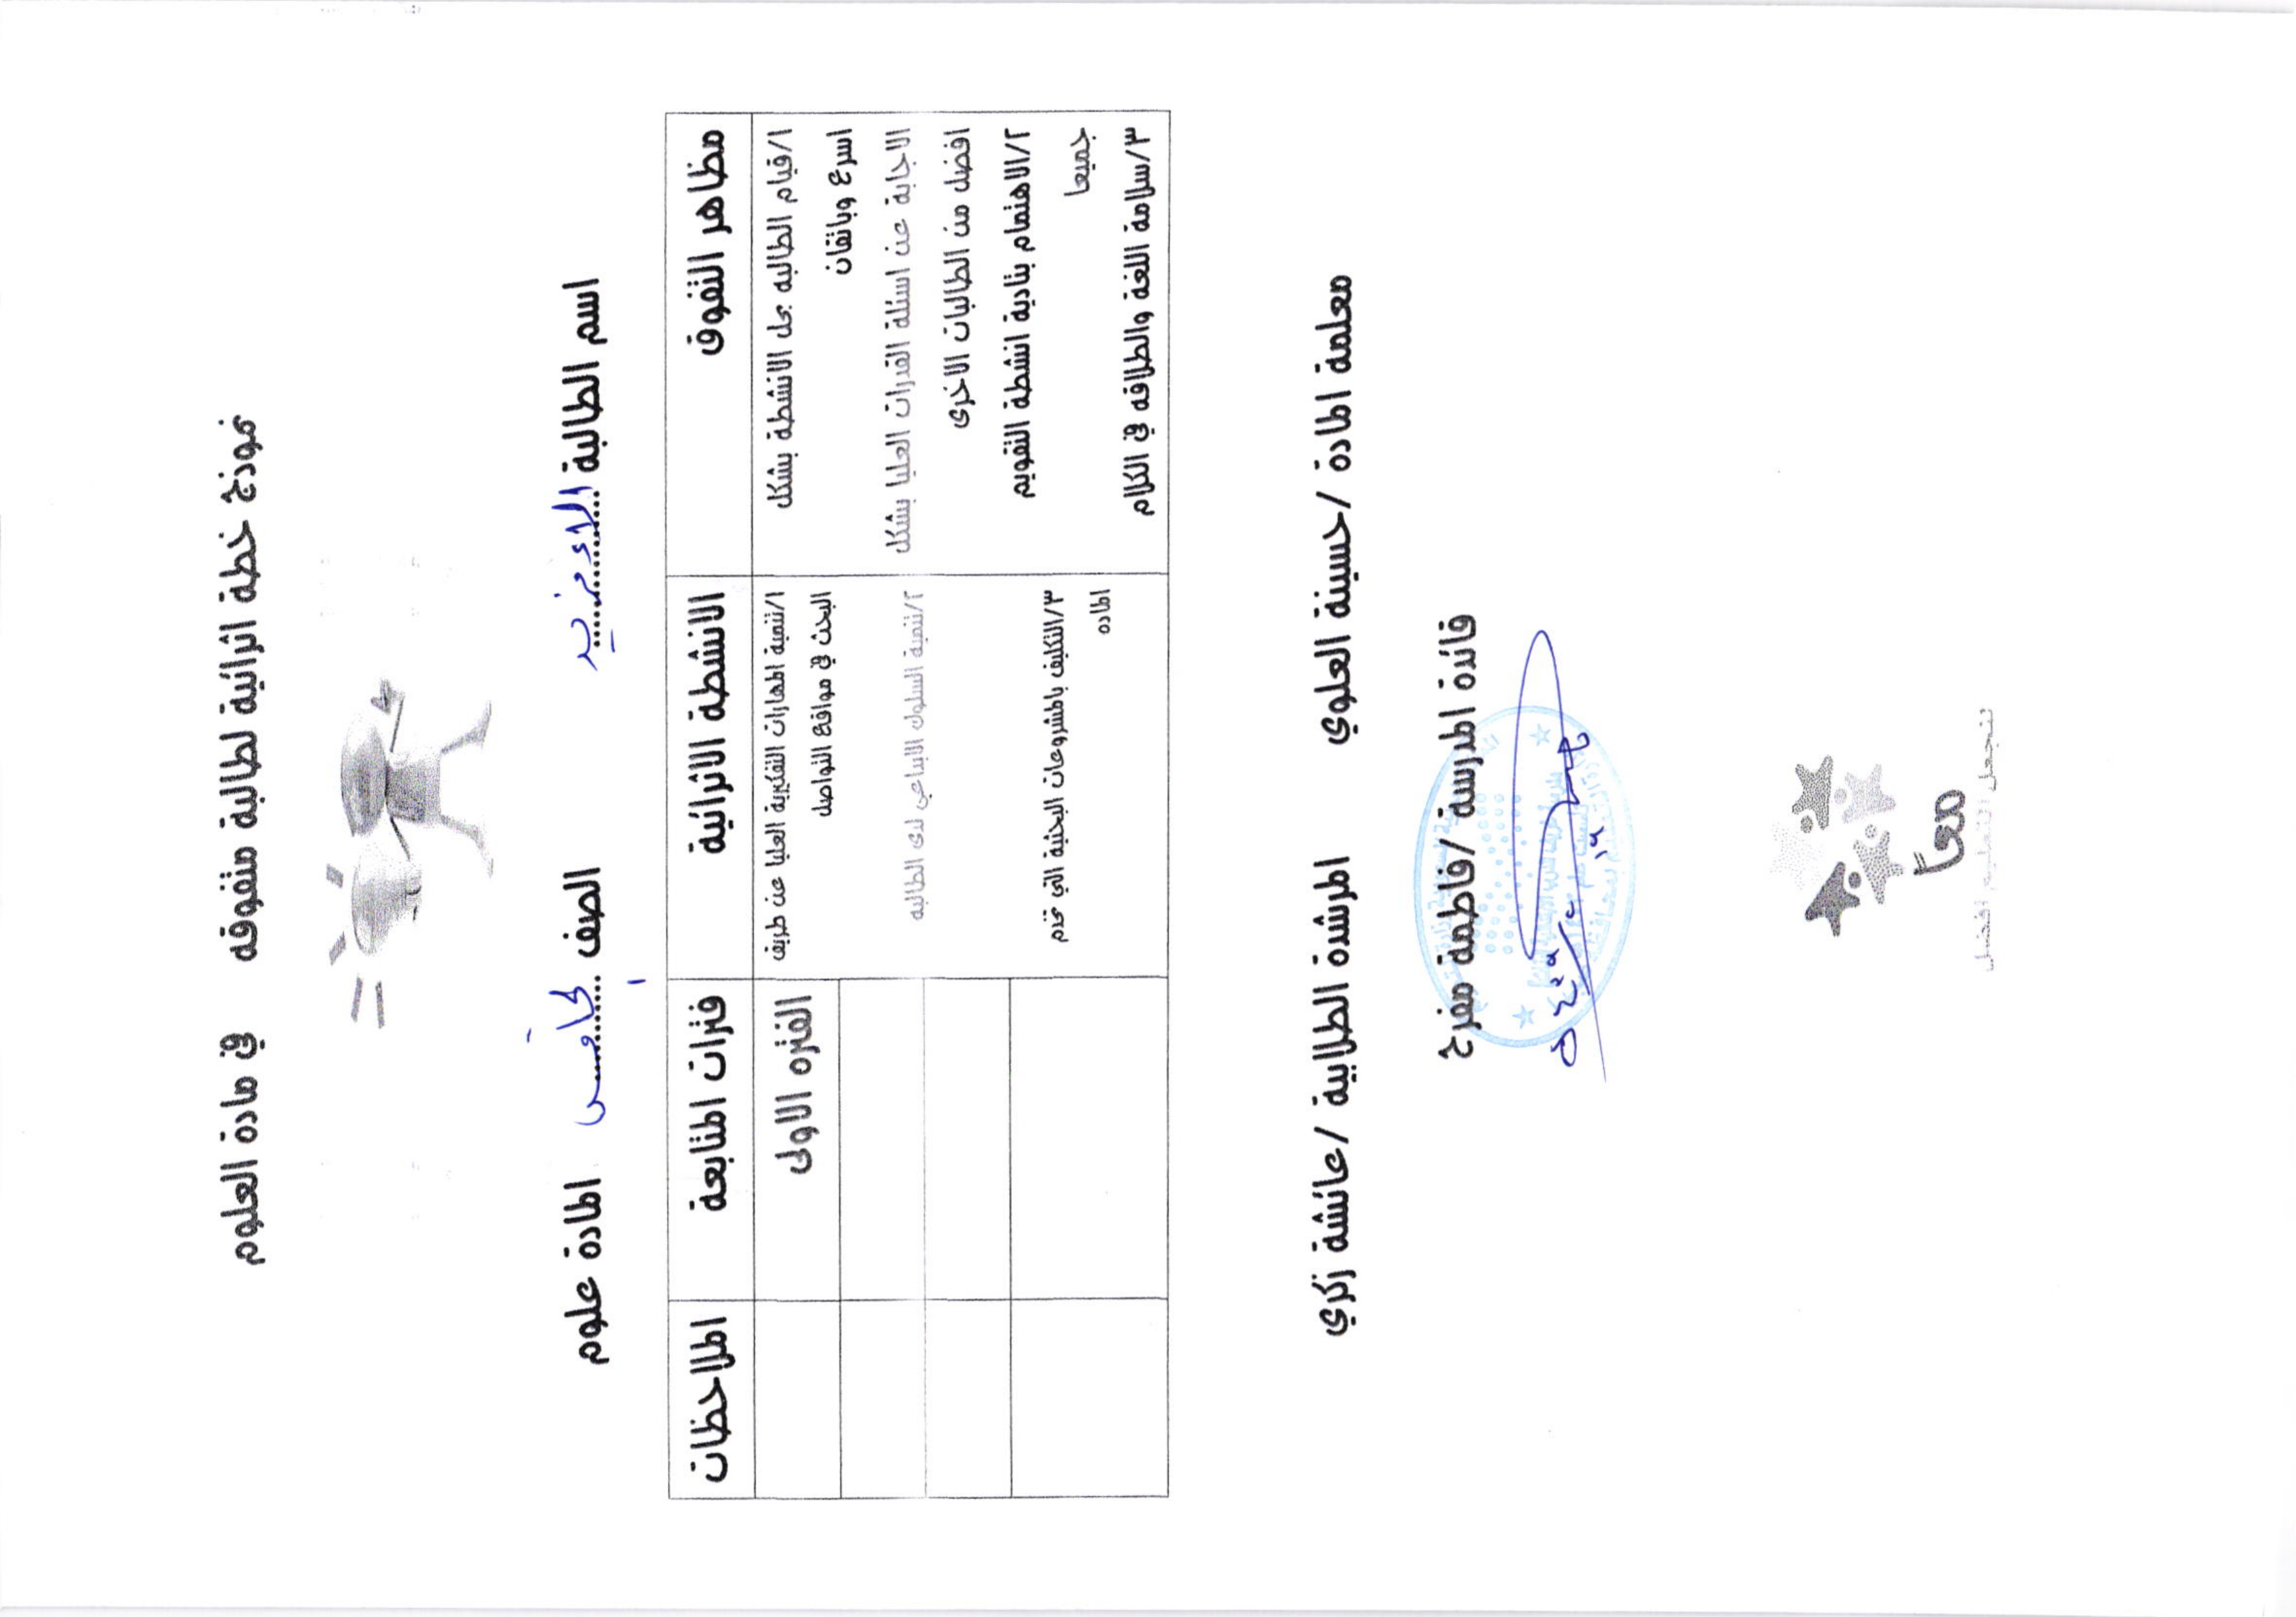 نموذج خطة اثرائية لطالبة متفوقه في مادة العلوم
اسم الطالبة الاء مزيد الصف خامس أ المادة علوم
مظاهر التفوق
الانشطة الاثرائية
فترات المتابعة
الملاحظات
١/قيام الطالبة بحل الانشطة بشكل
اسرع وباتقان
الاجابة عن اسئلة القدرات العليا بشكل
افضل من الطالبات الاخرى
٢/الاهتمام بتادية انشطة التقويم
٣/سلامة اللغة والطلاقة في الكلام
١/تنمية المهارات التفكيرية العليا عن طريق
البحث في مواقع التواصل
٢/تنمية السلوك الابداعي لدى الطالبة
٣/التكليف بالمشروعات البحثية التي تثري
المادة
الفترة الاولى
معلمة المادة /حسينة العلوي المرشدة الطلابية /عائشة زكري
قائدة المدرسة/ صادقة جابر
معاً
نتجعل التعليم افضل